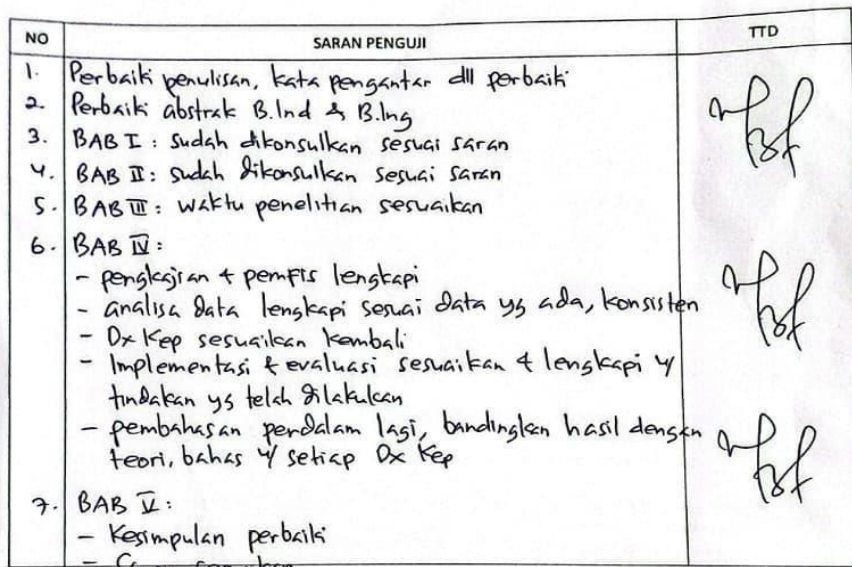 NO SARAN PENGUJI TTD
1. Perbaiki penulisan, kata pengantar dll perbaiki
2. Perbaiki abstrak B.Ind & B.Ing
3. BAB I : sudah dikonsulkan sesuai saran
4. BAB II : sudah dikonsulkan sesuai saran
5. BAB III : waktu penelitian sesuaikan
6. BAB IV :
- pengkajian + pemfis lengkapi
- analisa data lengkapi sesuai data yg ada, konsisten
- Dx Kep sesuaikan kembali
- Implementasi & evaluasi sesuaikan & lengkapi
tindakan yg telah dilakukan
- pembahasan perdalam lagi, bandingkan hasil dengan
teori, bahas setiap Dx Kep
7. BAB V :
- Kesimpulan perbaiki